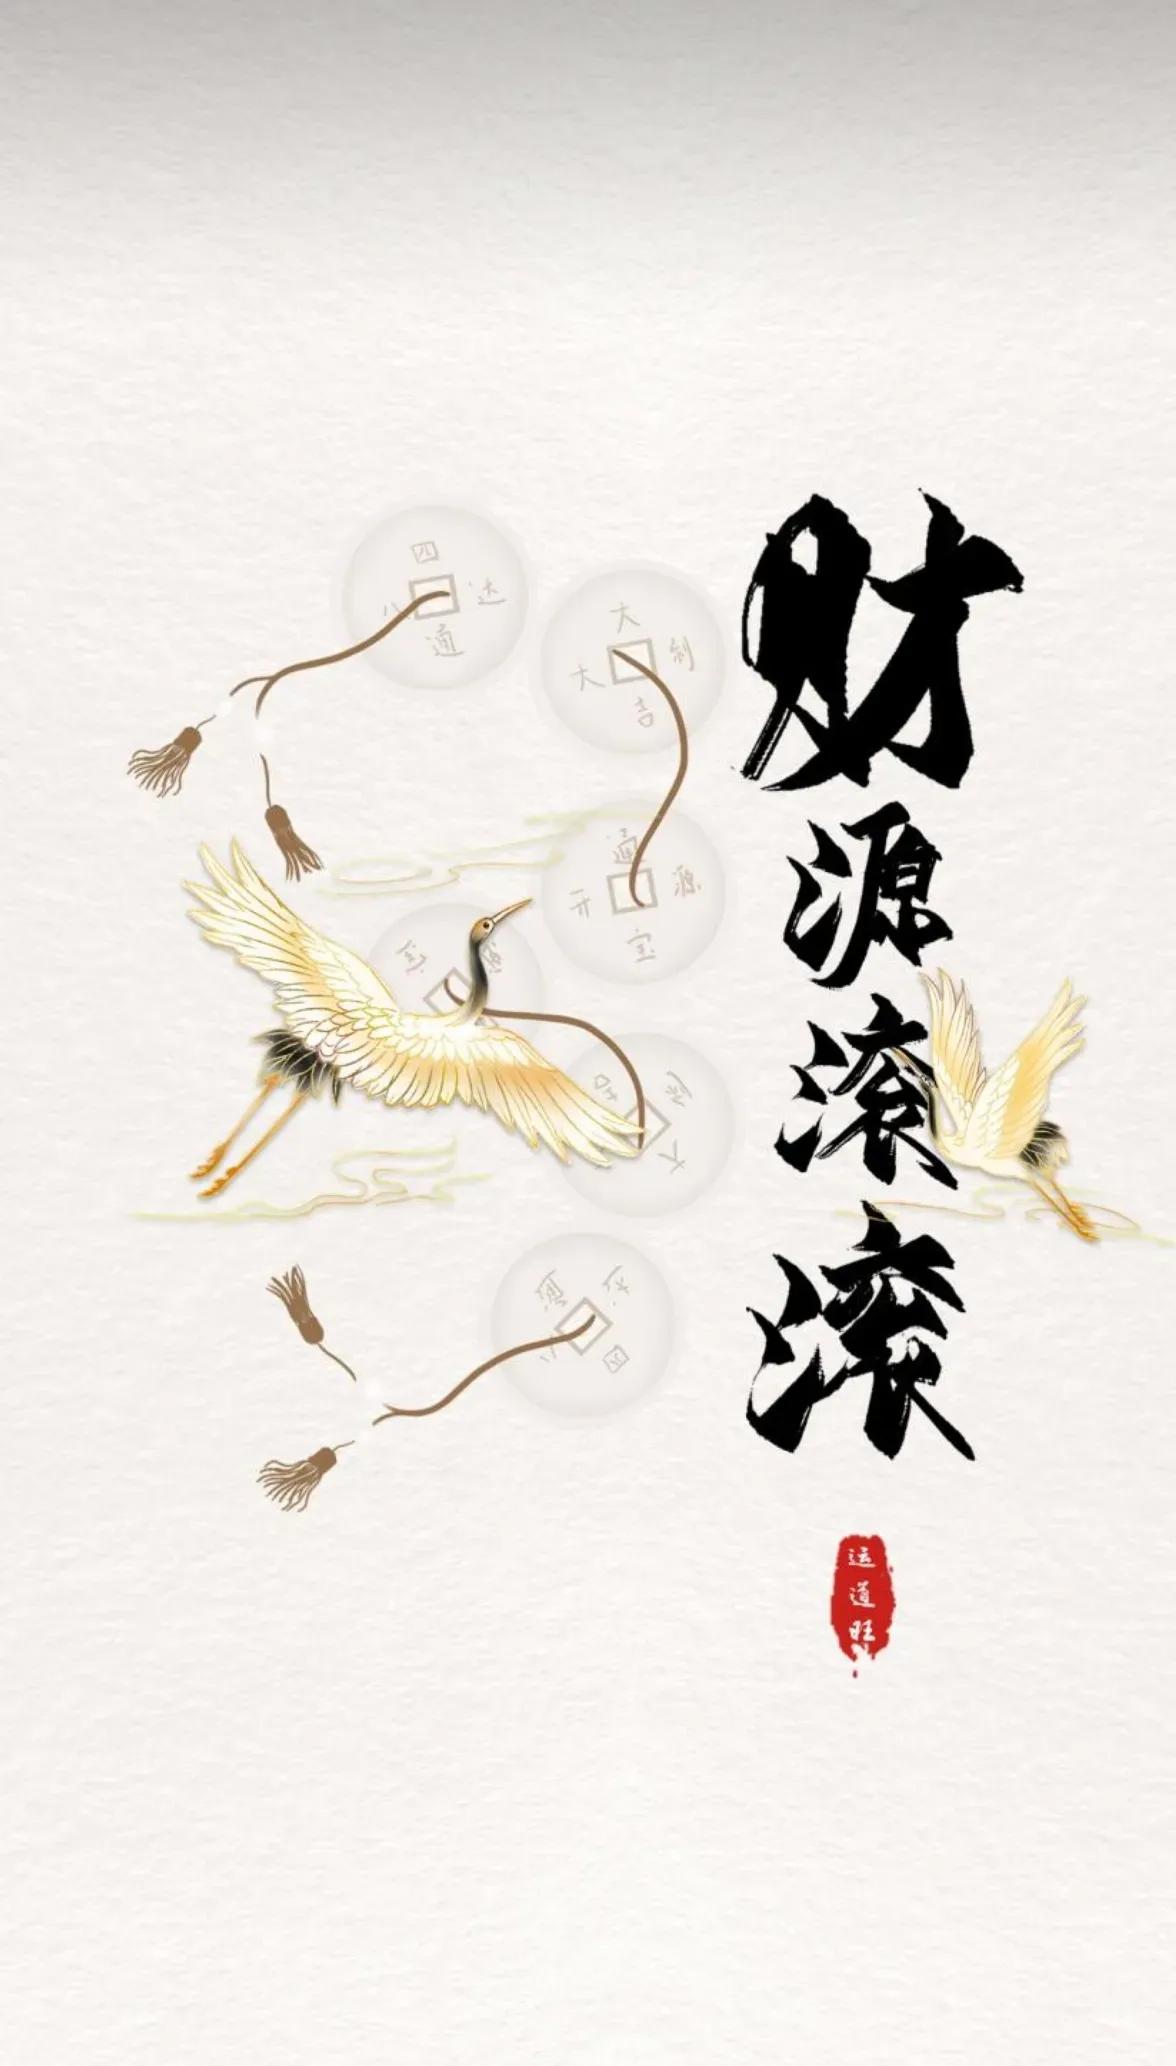 财源滚滚
运道旺
四达通八
大剑吉大
通源宝开